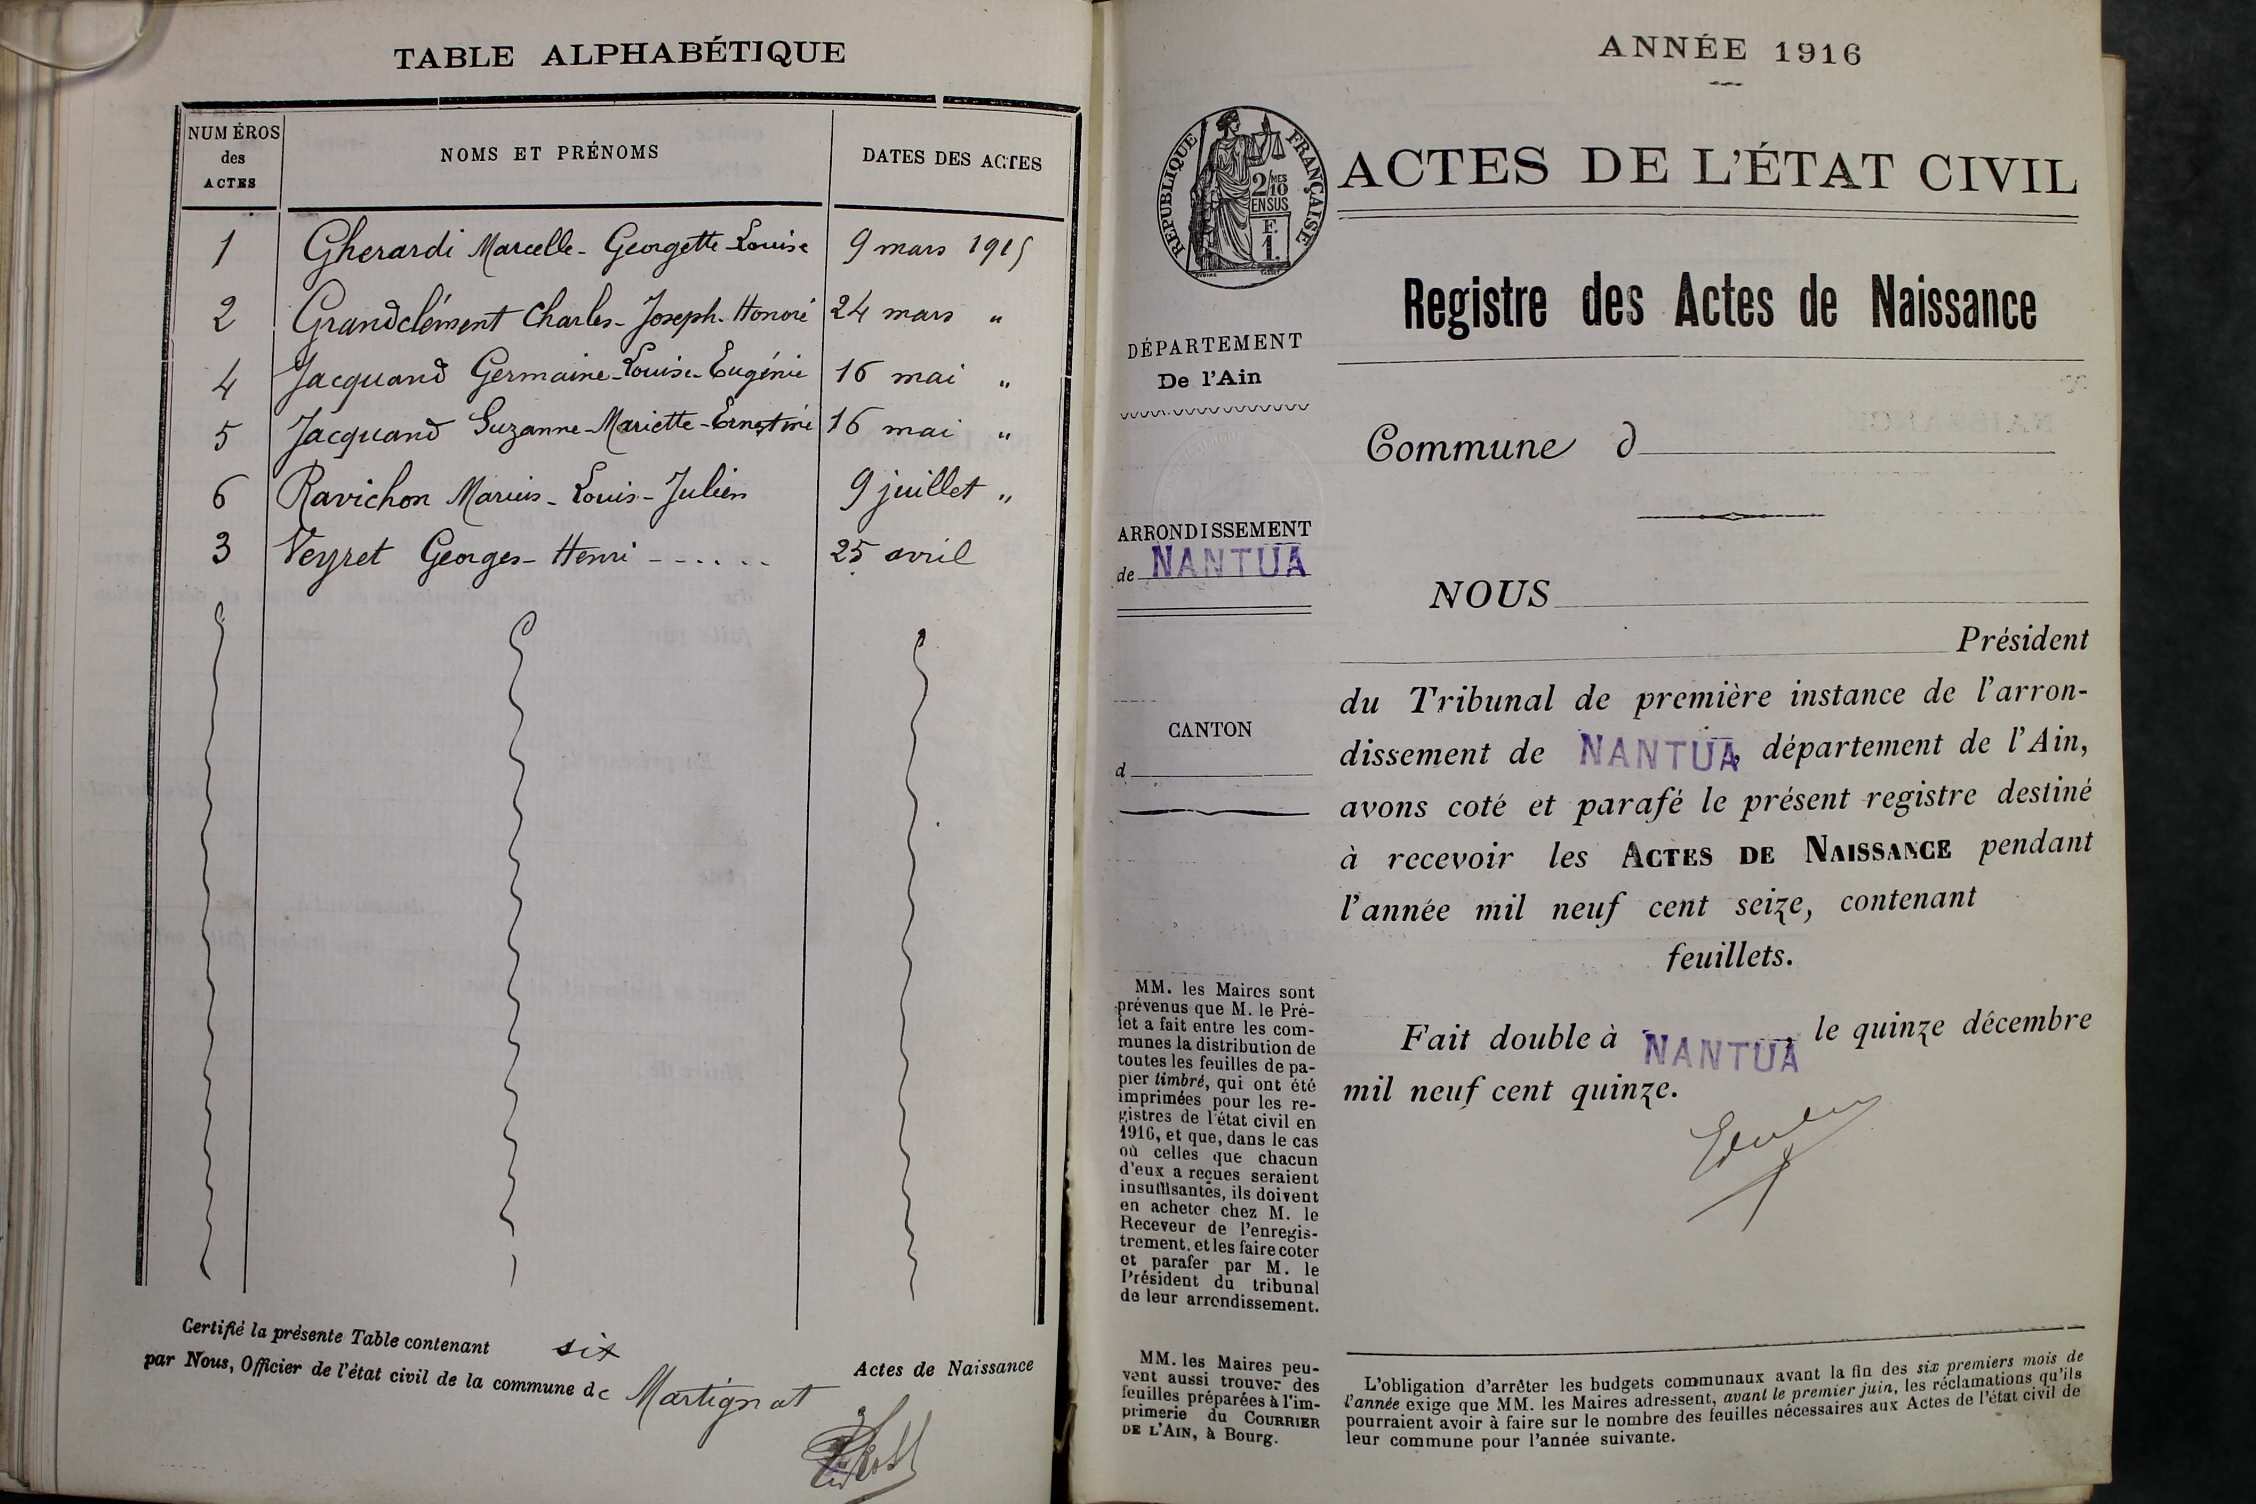 TABLE ALPHABÉTIQUE
NUMÉROS
des
ACTES
NOMS ET PRÉNOMS
DATES DES ACTES
1 Gherardi Marcelle-Georgette-Louise 9 mars 1915
2 Grandclément Charles-Joseph-Honoré 24 mars "
4 Jacquand Germaine-Louise-Eugénie 16 mai "
5 Jacquand Suzanne-Mariette-Ernestine 16 mai "
6 Ravichon Marius-Louis-Julien 9 juillet "
3 Veyret Georges-Henri 25 avril
Certifié la présente Table contenant six Actes de Naissance
par Nous, Officier de l'état civil de la commune de Martignat
ANNÉE 1916
RÉPUBLIQUE FRANÇAISE
2/10MES
EN SUS
F.
1.
ACTES DE L'ÉTAT CIVIL
Registre des Actes de Naissance
DÉPARTEMENT
De l'Ain
Commune d
ARRONDISSEMENT
de NANTUA
CANTON
d
NOUS
Président
du Tribunal de première instance de l'arron-
dissement de NANTUA, département de l'Ain,
avons coté et parafé le présent registre destiné
à recevoir les ACTES DE NAISSANCE pendant
l'année mil neuf cent seize, contenant
feuillets.
Fait double à NANTUA, le quinze décembre
mil neuf cent quinze.
MM. les Maires sont
prévenus que M. le Pré-
fet a fait entre les com-
munes la distribution de
toutes les feuilles de pa-
pier timbré, qui ont été
imprimées pour les re-
gistres de l'état civil en
1916, et que, dans le cas
où celles que chacun
d'eux a reçues seraient
insuffisantes, ils doivent
en acheter chez M. le
Receveur de l'enregis-
trement, et les faire coter
et parafer par M. le
Président du tribunal
de leur arrondissement.
MM. les Maires peu-
vent aussi trouver des
feuilles préparées à l'im-
primerie du COURRIER
DE L'AIN, à Bourg.
L'obligation d'arrêter les budgets communaux avant la fin des six premiers mois de
l'année exige que MM. les Maires adressent, avant le premier juin, les réclamations qu'ils
pourraient avoir à faire sur le nombre des feuilles nécessaires aux Actes de l'état civil de
leur commune pour l'année suivante.